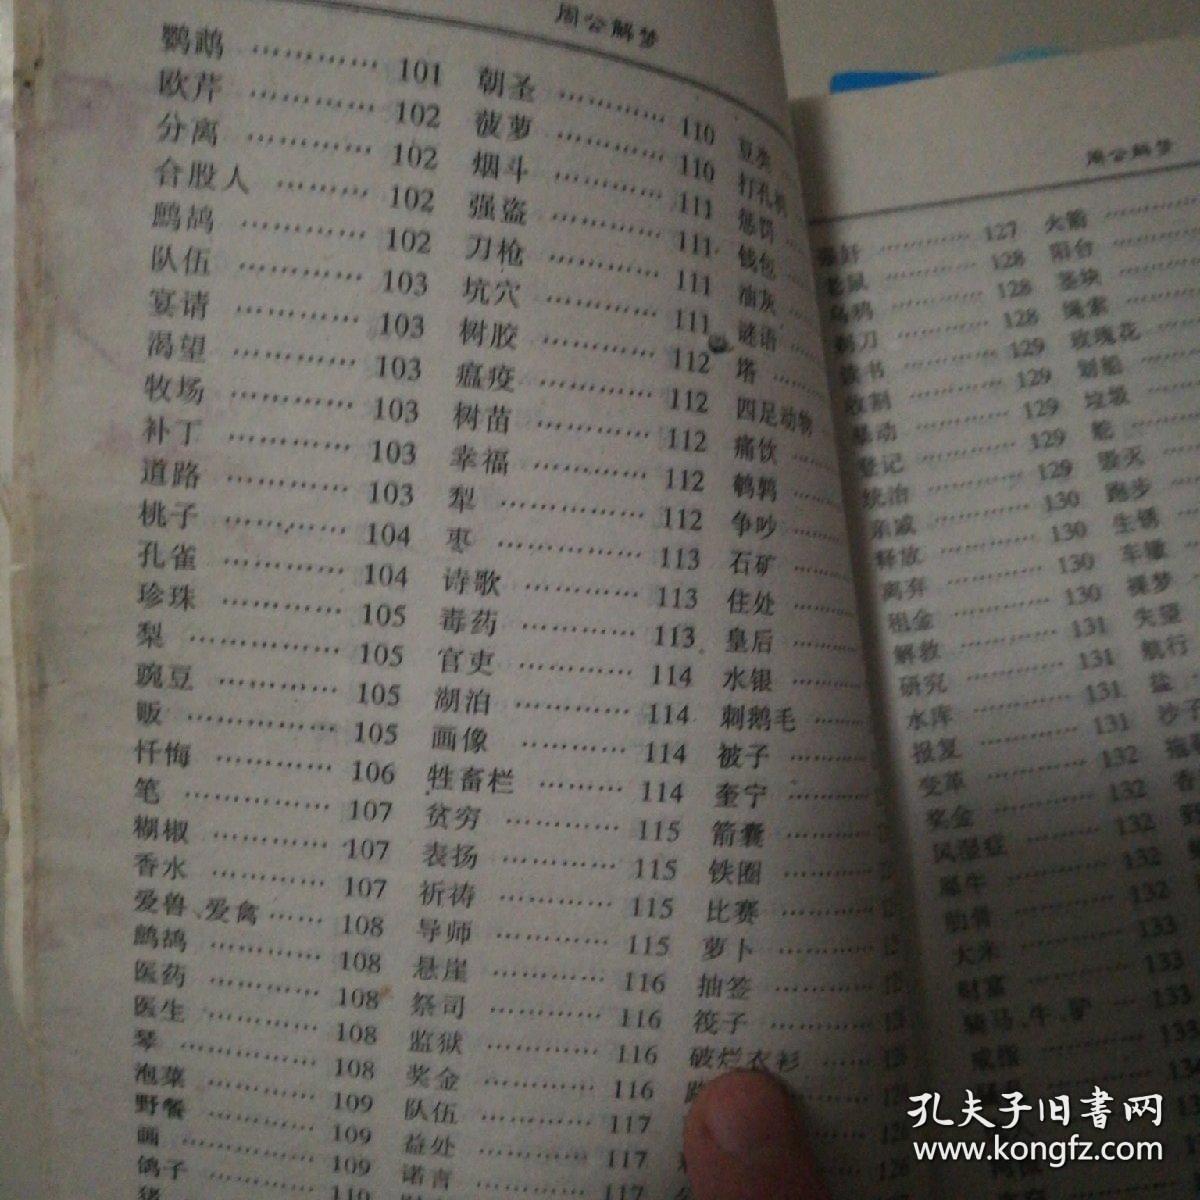 周公解梦
鹦鹉 ………… 101
欧芹 ………… 102
分离 ………… 102
合股人 ……… 102
鹧鸪 ………… 102
队伍 ………… 103
宴请 ………… 103
渴望 ………… 103
牧场 ………… 103
补丁 ………… 103
道路 ………… 103
桃子 ………… 104
孔雀 ………… 104
珍珠 ………… 105
梨 …………… 105
豌豆 ………… 105
贩 …………… 105
忏悔 ………… 106
笔 …………… 107
糊椒 ………… 107
香水 ………… 107
爱兽、爱禽 …… 108
鹧鸪 ………… 108
医药 ………… 108
医生 ………… 108
琴 …………… 108
泡菜 ………… 109
野餐 ………… 109
画 …………… 109
鸽子 ………… 110
猪
朝圣 ………… 110
菠萝 ………… 110
烟斗 ………… 111
强盗 ………… 111
刀枪 ………… 111
坑穴 ………… 111
树胶 ………… 112
瘟疫 ………… 112
树苗 ………… 112
幸福 ………… 112
犁 …………… 112
枣 …………… 113
诗歌 ………… 113
毒药 ………… 113
官吏 ………… 114
湖泊 ………… 114
画像 ………… 114
牲畜栏 ……… 114
贫穷 ………… 115
表扬 ………… 115
祈祷 ………… 115
导师 ………… 115
悬崖 ………… 116
祭司 ………… 116
监狱 ………… 116
奖金 ………… 116
队伍 ………… 117
益处 ………… 117
诺言 ………… 117
豆类
打孔机
惩罚
钱包
油灰
谜语
塔
四足动物
痛饮
鹌鹑
争吵
石矿
住处
皇后
水银
刺鹅毛
被子
奎宁
箭囊
铁圈
比赛
萝卜
抽签
筏子
破烂衣衫
周公解梦
127
老鼠 ………… 128
乌鸦 ………… 128
剃刀 ………… 128
读书 ………… 129
收割 ………… 129
暴动 ………… 129
登记 ………… 129
统治 ………… 129
亲戚 ………… 130
释放 ………… 130
离弃 ………… 130
租金 ………… 130
解救 ………… 131
研究 ………… 131
水库 ………… 131
报复 ………… 131
变革 ………… 132
奖金 ………… 132
风湿症 ……… 132
犀牛 ………… 132
肋骨 ………… 132
大米 ………… 133
财富 ………… 133
骑马、牛、驴 — 133
戒指
火箭
阳台
墨块
绳索
玫瑰花
划船
垃圾
舵
毁灭
跑步
生锈
车辙
裸梦
失望
航行
盐
沙子
孔夫子旧书网
www.kongfz.com